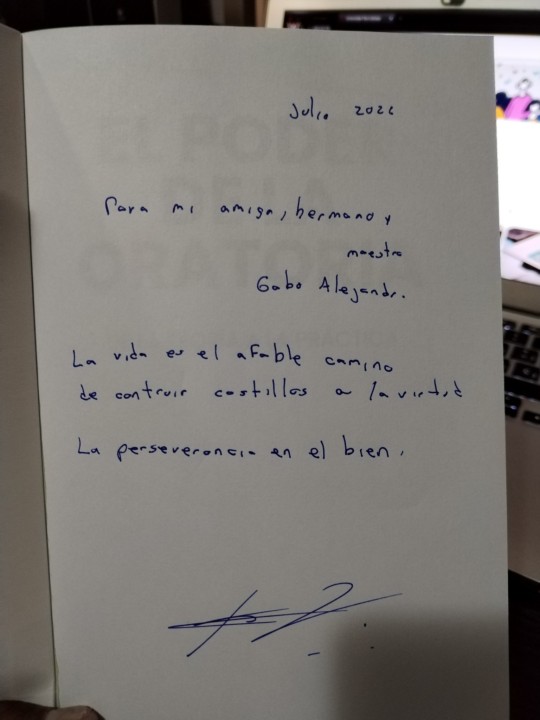 Julio 202
Para mi amigo, hermano y
maestro
Gabo Alejandr.
La vida es el afable camino
de contruir castillos a la virtud
La perseverancia en el bien.
EL PODER
DE LA
ORATORIA